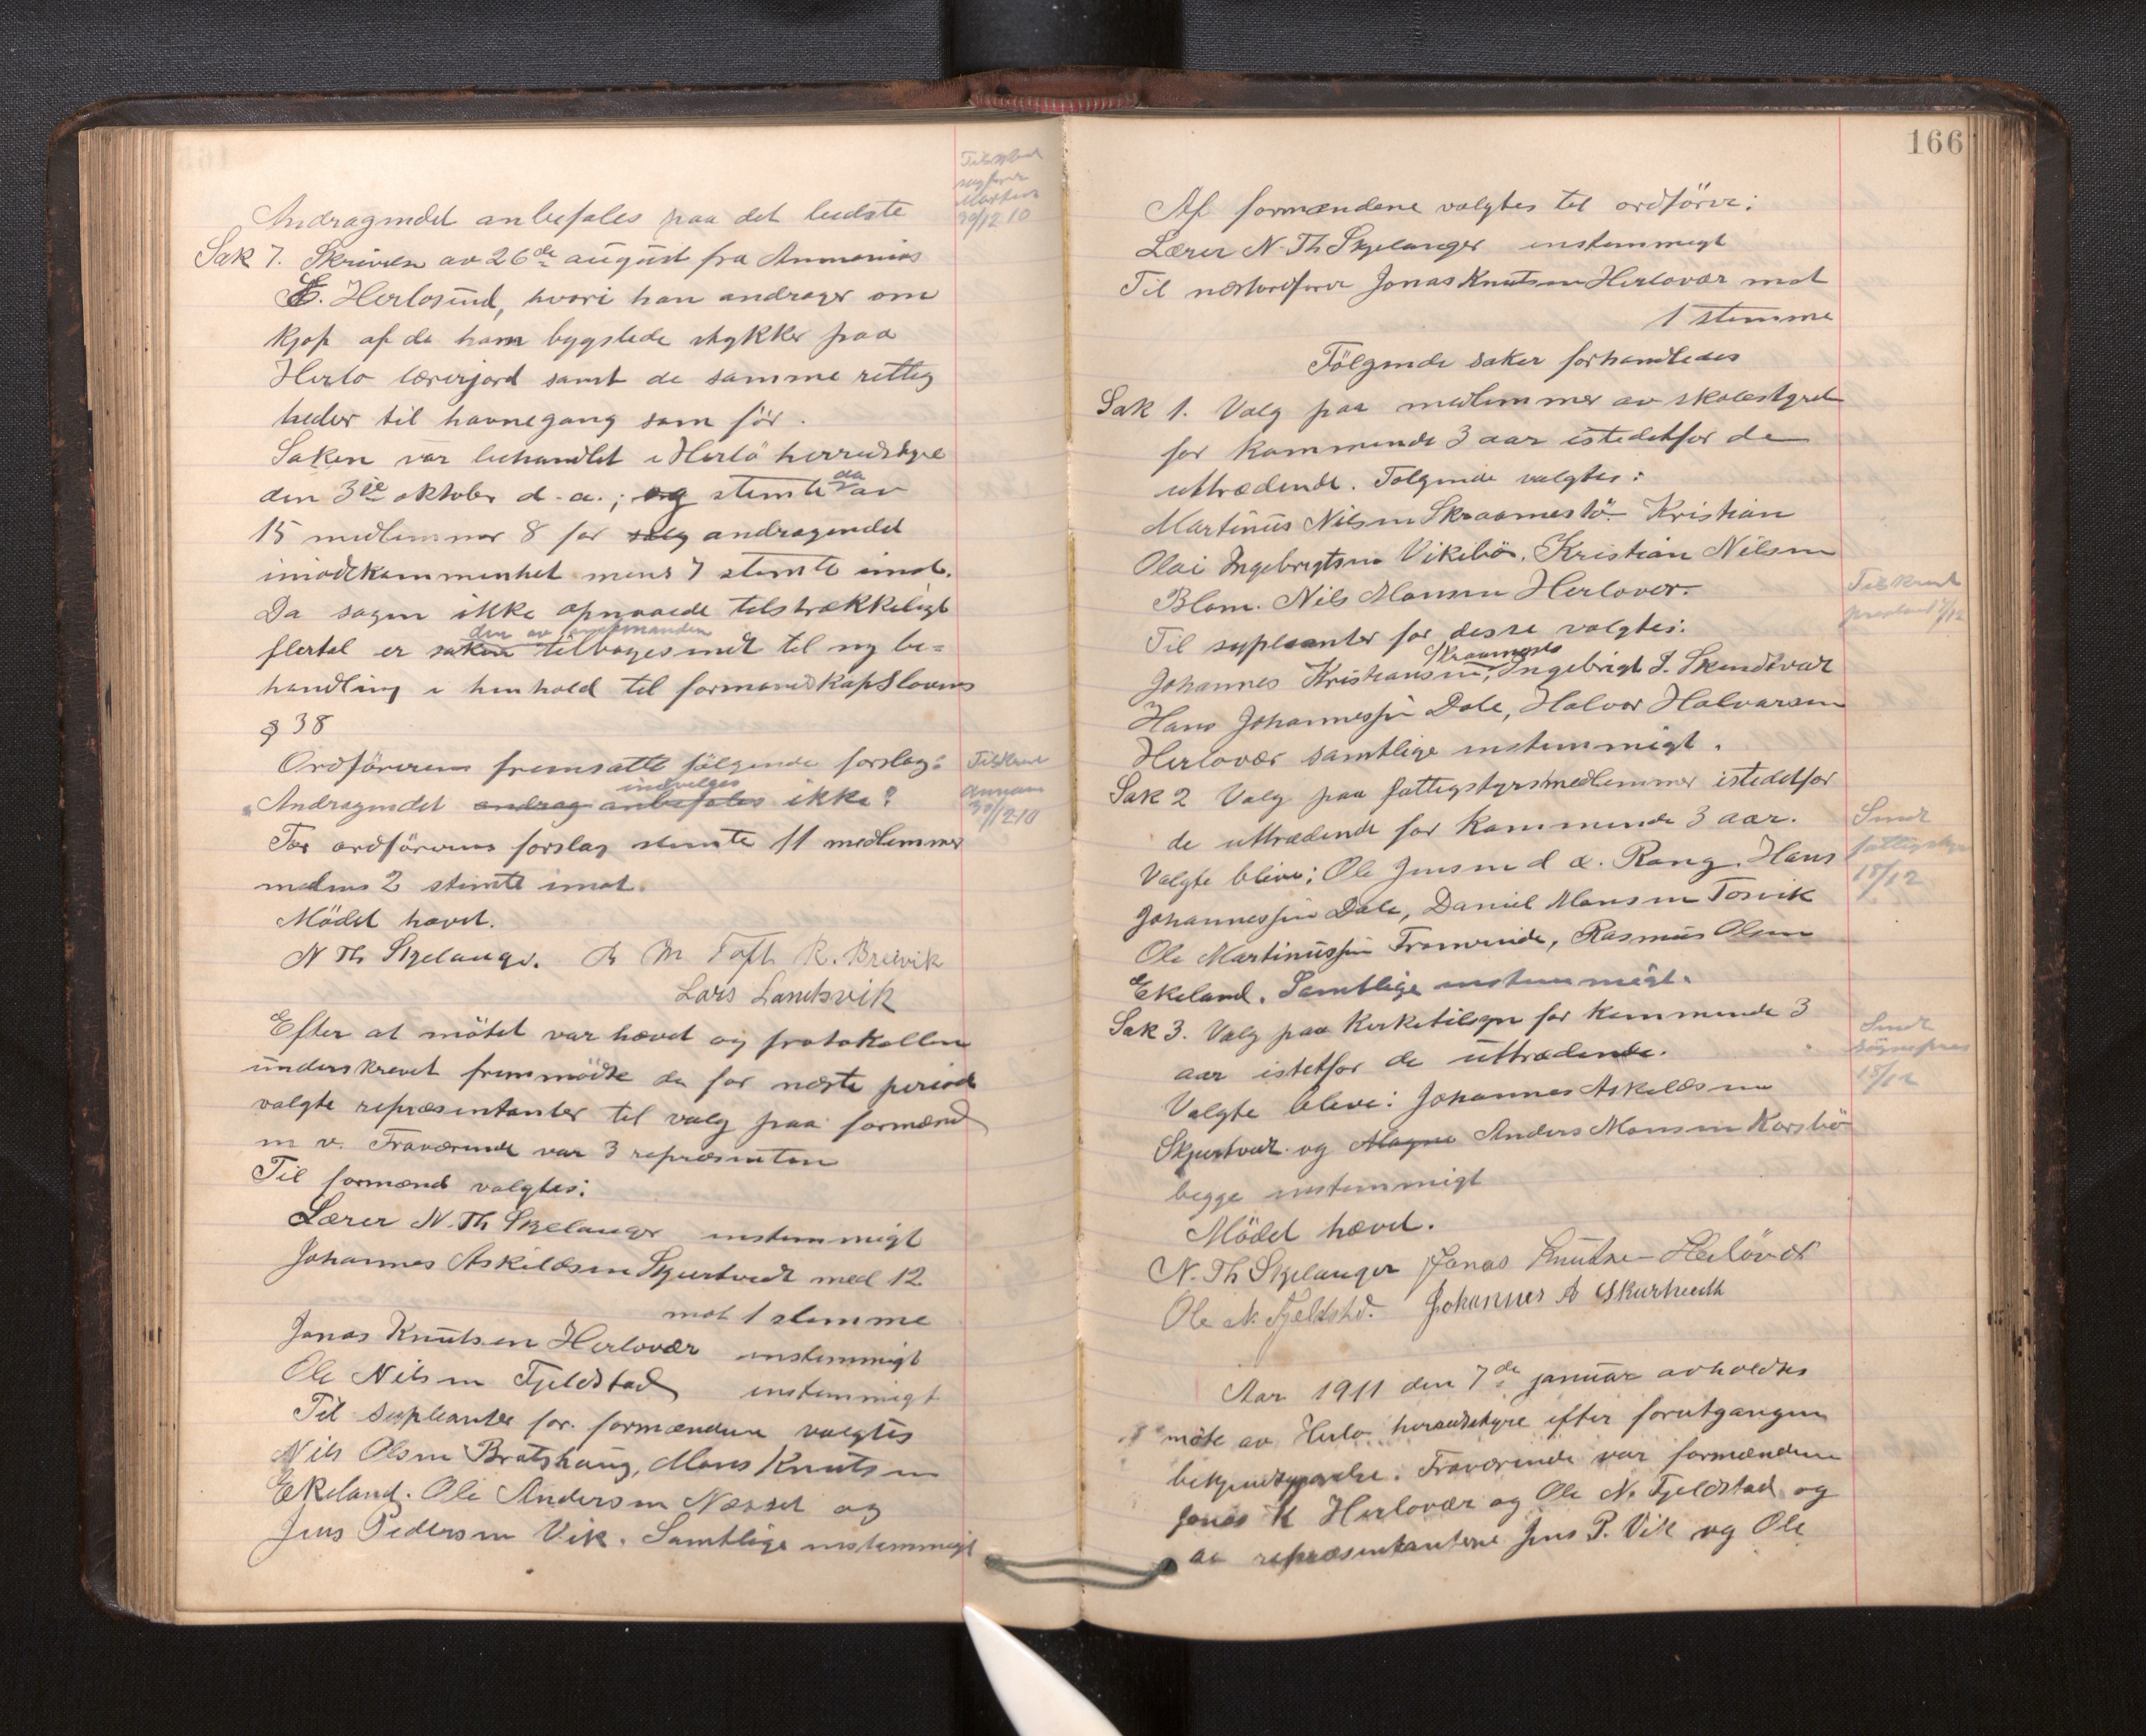 Andragendet anbefales paa det bedste
Sak 7. Skrivelse av 26de august fra Ammonius
E. Herlosund, hvori han andrager om
kjøp af de ham bygslede stykker paa
Herlo lærerjord samt de samme rettig
heder til havnegang som før.
Saken var behandlet i Herlö herredstyre
den 3die oktober d. a.; og stemte da av
15 medlemmer 8 for salg andragendet
imødekommenhet mens 7 stemte imot.
Da sagen ikke opnaaede tilstrækkeligt
den av amtmanden
flertal er saken tilbagesendt til ny be=
handling i henhold til formandskapslovens
§ 38
Ordföreren fremsatte fölgende forslag:
indvilges
"Andragendet andrag anbefales ikke"
For ordförerens forslag stemte 11 medlemmer
medens 2 stemte imot.
Mödet hævet.
N Th Skjelanger. R M Toft R. Breivik
Lars Landsvik
Efter at mötet var hævet og protokollen
underskrevet fremmödte de for næste periode
valgte repræsentanter til valg paa formænd
m v. Fraværende var 3 repræsenten
Til formænd valgtes:
Lærer N. Th Skjelanger enstemmigt
Johannes Askildsen Skjurtveit med 12
mot 1 stemme
Jonas Knutsen Herlovær enstemmigt
Ole Nilsen Fjeldstad enstemmigt
Til supleanter for formændene valgtes
Nils Olsen Bratshaug, Mons Knutsen
Ekeland. Ole Andersen Næsset og
Jens Pedersen Vik. Samtlige enstemmigt
Tilskrevet
30/12 10
Tilskrevet
Ammon
30/12 10
166
Af formændene valgtes til ordförer:
Lærer N. Th Skjelanger enstemmigt
Til næstordförer Jonas Knutsen Herlovær mot
1 stemme
Fölgende saker forhandledes
Sak 1. Valg paa medlemmer av skolestyret
for kommende 3 aar istedetfor de
uttrædende. Fölgende valgtes:
Martinus Nilsen Skraamestö. Kristian
Olai Ingebrigtsen Vikebö. Kristian Nilsen
Blom. Nils Monsen Herlovær.
Til supleanter for desse valgtes:
Skraamestö
Johannes Kristiansen, Ingebrigt J. Skurtveit
Hans Johannessen Dale, Halvor Halvorsen
Herlovær samtlige enstemmigt.
Sak 2 Valg paa fattigstyrsmedlemmer istedetfor
de uttrædende for kommende 3 aar.
Valgte bleve: Ole Jensen d æ. Rong. Hans
Johannessen Dale, Daniel Monsen Torsvik
Ole Martinussen Fromreide, Rasmus Olsen
Ekeland. Samtlige enstemmigt.
Sak 3. Valg paa kirketilsyn for kommende 3
aar istetfor de uttrædende.
Valgte bleve: Johannes Askildsen
Skjurtveit og Magne Anders Monsen Korsbö
begge enstemmigt
Mödet hævet.
N. Th Skjelanger Jonas Knutsen Herlövær
Ole N. Fjeldstad. Johannes A Skurtveedt
Aar 1911 den 7de januar avholdtes
möte av Herlo herredstyre efter forutgangen
bekjendtgjørelse. Fraværende var formændene
Jonas K Herlovær og Ole N. Fjeldstad og
av repræsentanterne Jens P. Vik og Ole
Tilskrevet
presten 18/12
Sendt
fattigstyre
18/12
Sendt
sogneprest
18/12